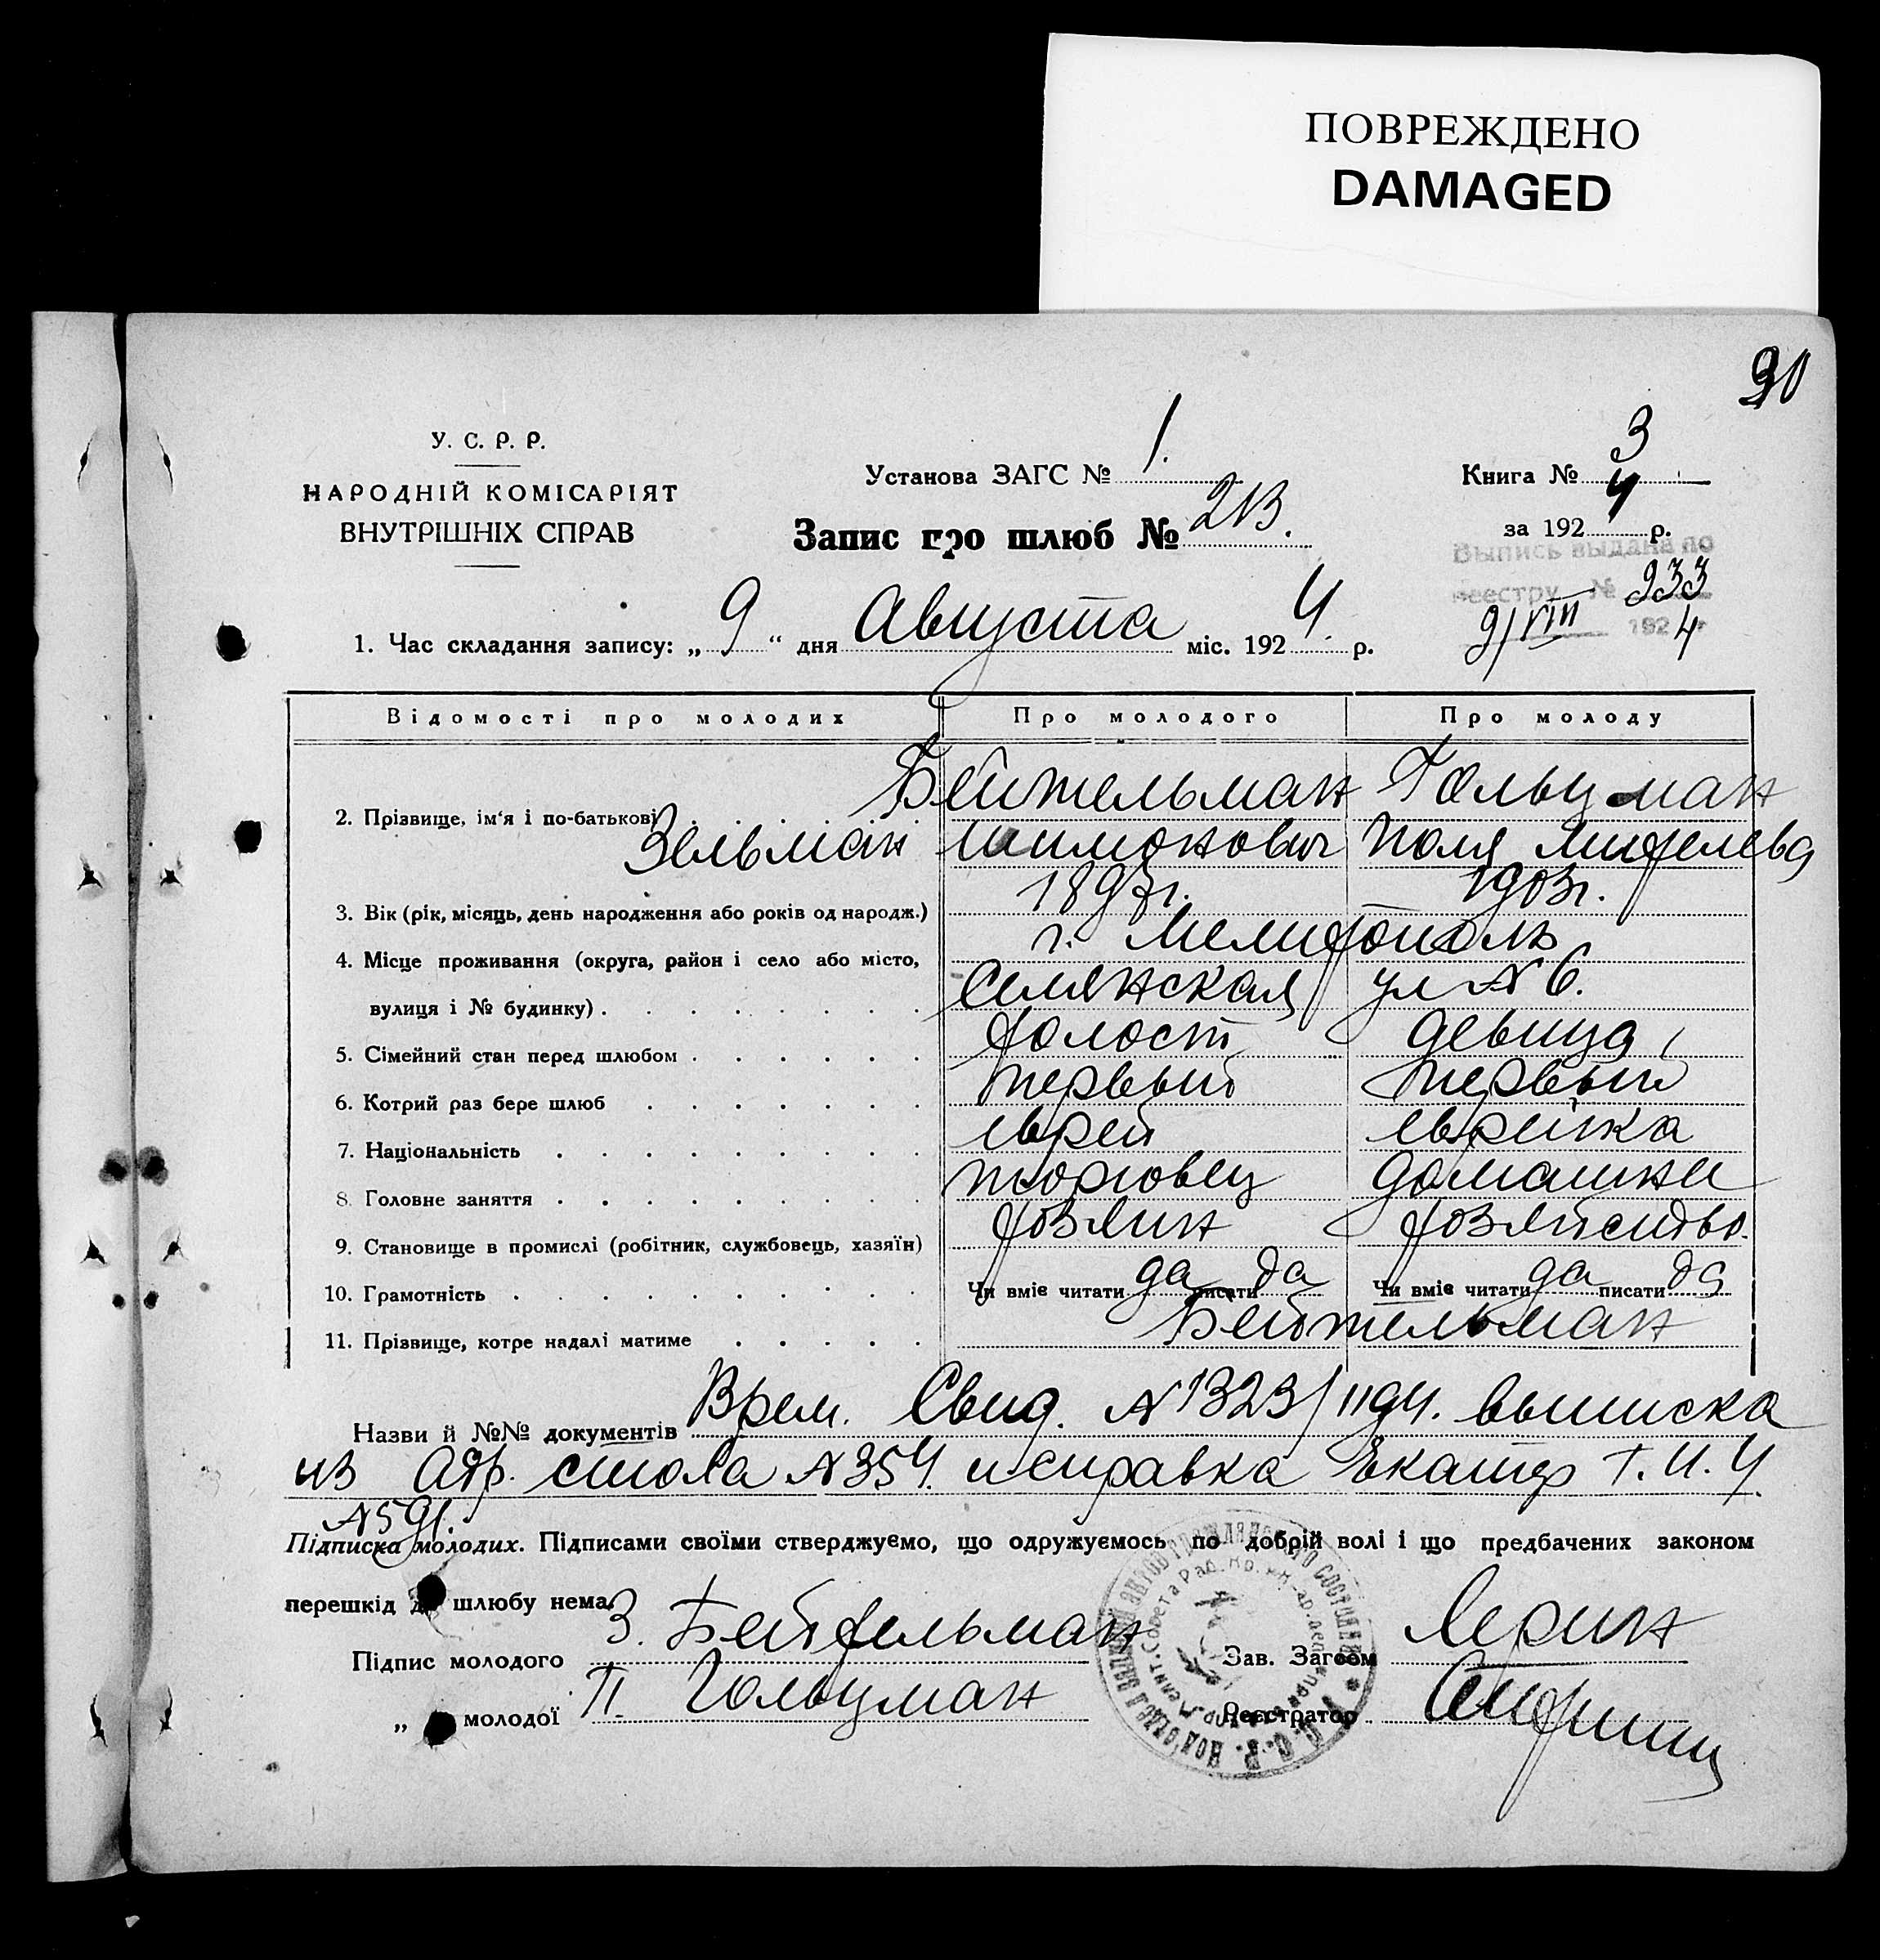 ПОВРЕЖДЕНО
DAMAGED
У. С. Р. Р.
НАРОДНІЙ КОМІСАРІЯТ
ВНУТРІШНІХ СПРАВ
Установа ЗАГС № 1.
Запис про шлюб № 213.
Книга № 3
за 1924 р.
Выпись выдана по
реестру № 933
9/VIII 1924 г
1. Час складання запису: „ 9 “ дня Августа міс. 1924. р.
Відомості про молодих Про молодого Про молоду
2. Прізвище, ім‘я і по-батькові Бейтельман Гольцман
Зельман Шимонович Поля
3. Вік (рік, місяць, день народження або років од народж.) 1897г. 1903г.
4. Місце проживання (округа, район і село або місто, г. Мелитополь
вулиця і № будинку) ул № 6.
5. Сімейний стан перед шлюбом холост девица
6. Котрий раз бере шлюб первый первый
7. Національність еврей еврейка
8. Головне заняття торговец домашнее
9. Становище в промислі (робітник, службовець, хазяїн) хозяин хозяйство.
10. Грамотність Чи вміє читати да писати да Чи вміє читати да писати да
11. Прізвище, котре надалі матиме Бейтельман
Назви й №№ документів Врем. Свид. № 1323/1194. выписка
из Адр. стола № 354. и справка Екатер
№ 591.
Підписка молодих. Підписами своїми стверджуємо, що одружуємось по добрій волі і що предбачених законом
перешкід до шлюбу нема.
Підпис молодого З. Бейтельман Зав. Загсом
„ молодої П. Гольцман Реєстратор